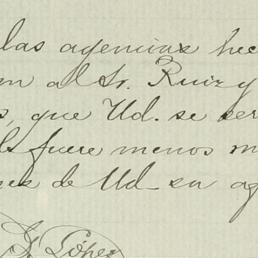 las agencias hec
m al Sr. Ruiz y
s, que Ud. se ser
ls fuere menos m
es de Ud su ag
J. Lopez